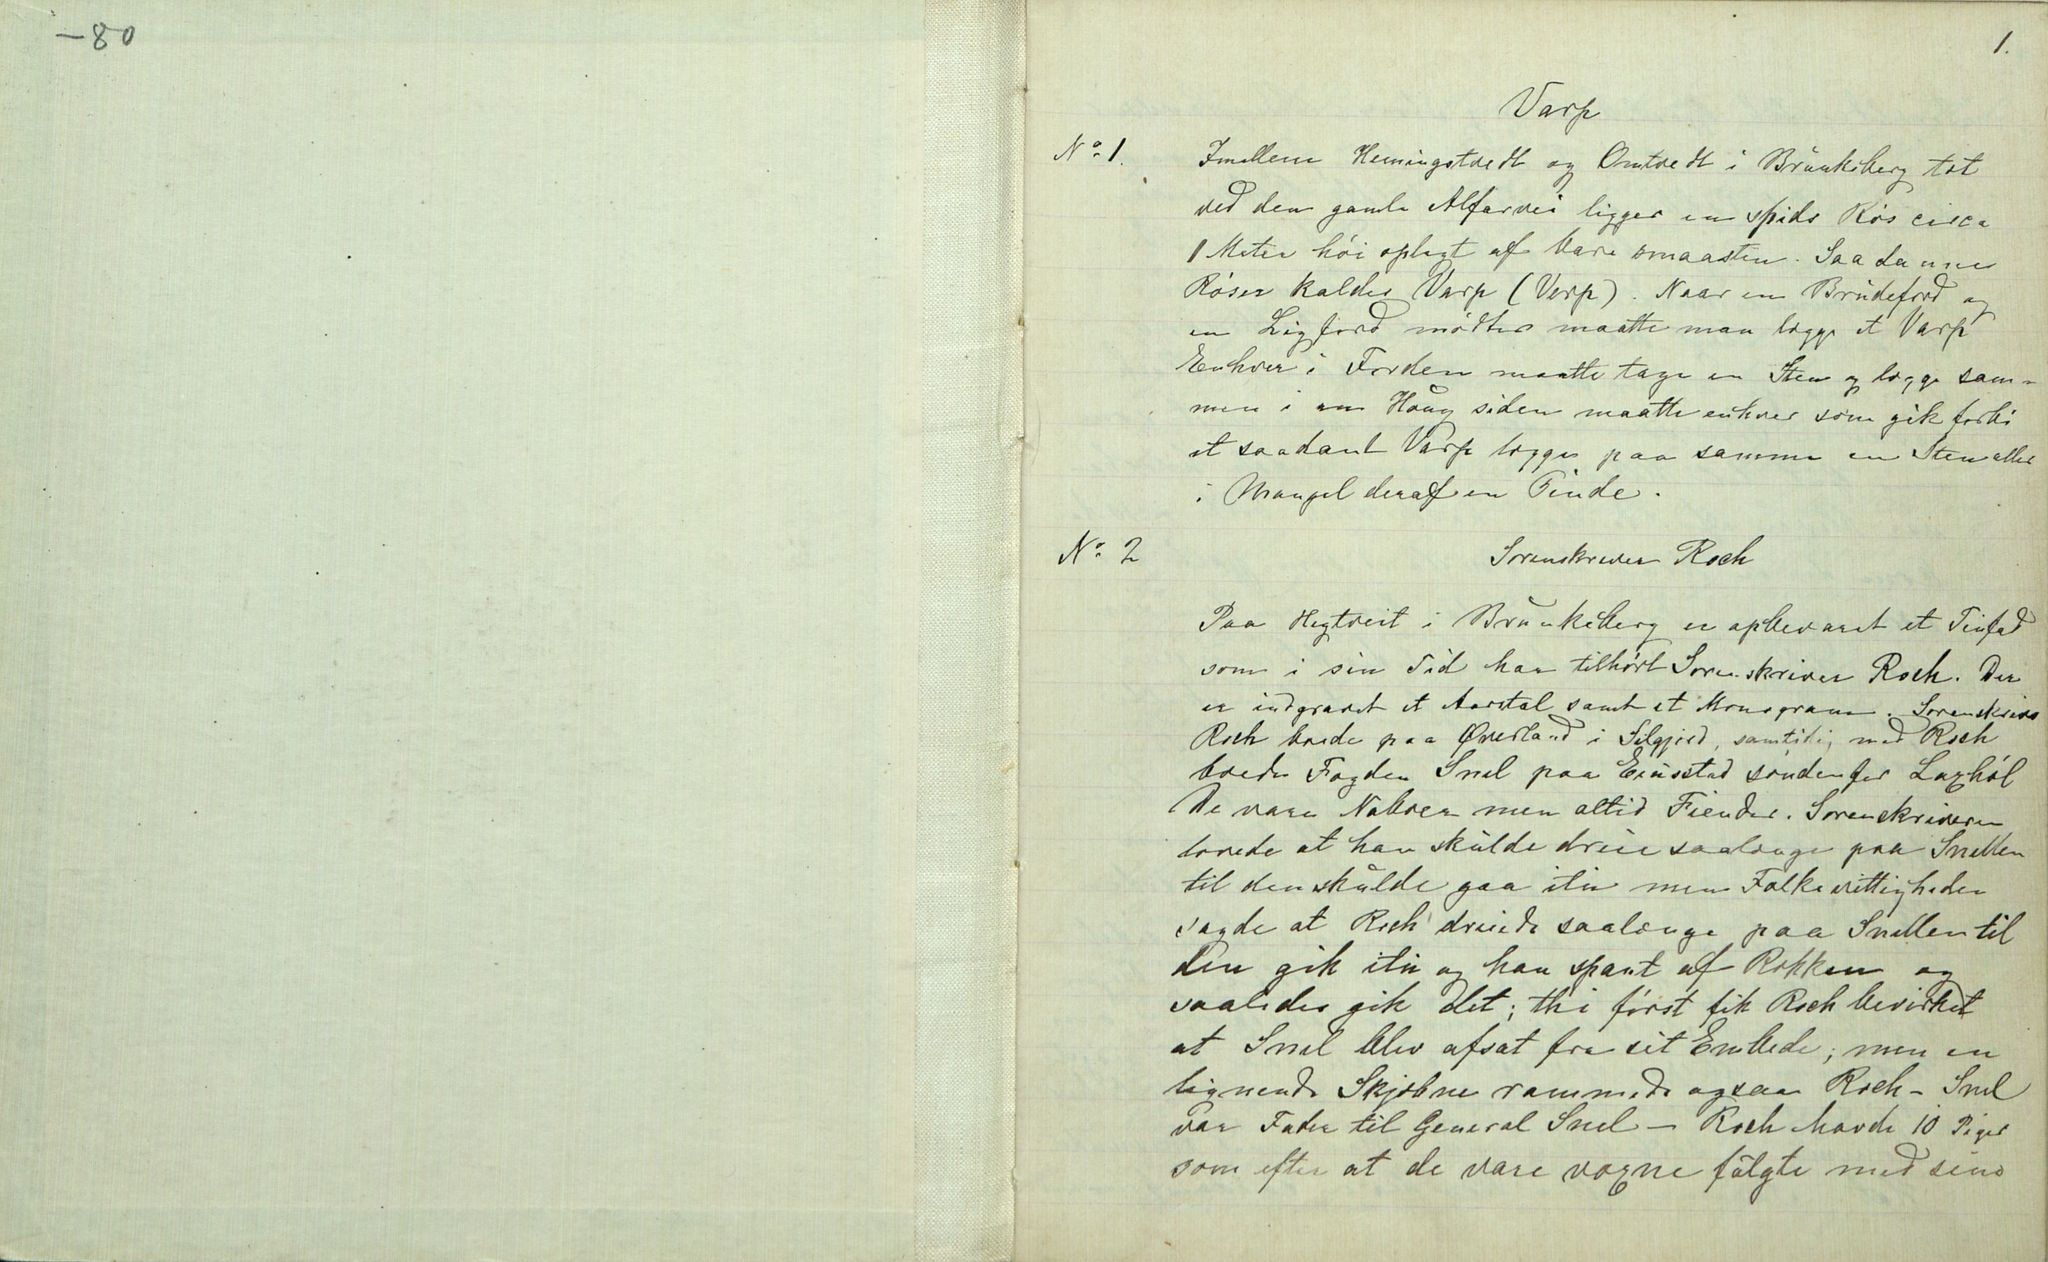 -80
1.
Varp
No 1.
Imellem Hemingstvedt og Omtvedt i Brunkeberg tæt
ved den gamle Alfarvei ligger en spids Rös circa
1 Meter höi oplagt af bare smaasten. Saadanne
Röser kaldes Varp (Verp). Naar en Brudeferd og
en Ligferd mödtes maatte man lægge et Varp
Enhver i Ferden maatte tage en Sten og lægge sam-
men i en Houg siden maatte enhver som gik forbi
et saadant Varp lægge paa samme en Sten eller
i Mangel deraf en Pinde.
No 2
Sorenskriver Roch
Paa Hegtveit i Brunkeberg er opbevaret et Tinfad
som i sin Tid har tilhört Sorenskriver Roch. Der
er indgravet et Aarstal samt et Monogram. Sorenskriver
Roch boede paa Överland i Silgjord, samtidig med Roch
boede Fogden Snel paa Eiusstad sönden for Laxhöl
De vare Naboer men altid Fiender. Sorenskriveren
lovede at han skulde dreie saalænge paa Snellen
til den skulde gaa itu men Folkevittigheden
sagde at Roch dreiede saalænge paa Snellen til
den gik itu og han spant af Rokken og
saaledes gik det; thi först fik Roch bevirket
at Snel blev afsat fra sit Embede; men en
lignende Skjæbne rammede ogsaa Roch - Snel
var Fader til General Snel - Roch havde 10 Piger
som efter at de vare voxne fulgte med sine